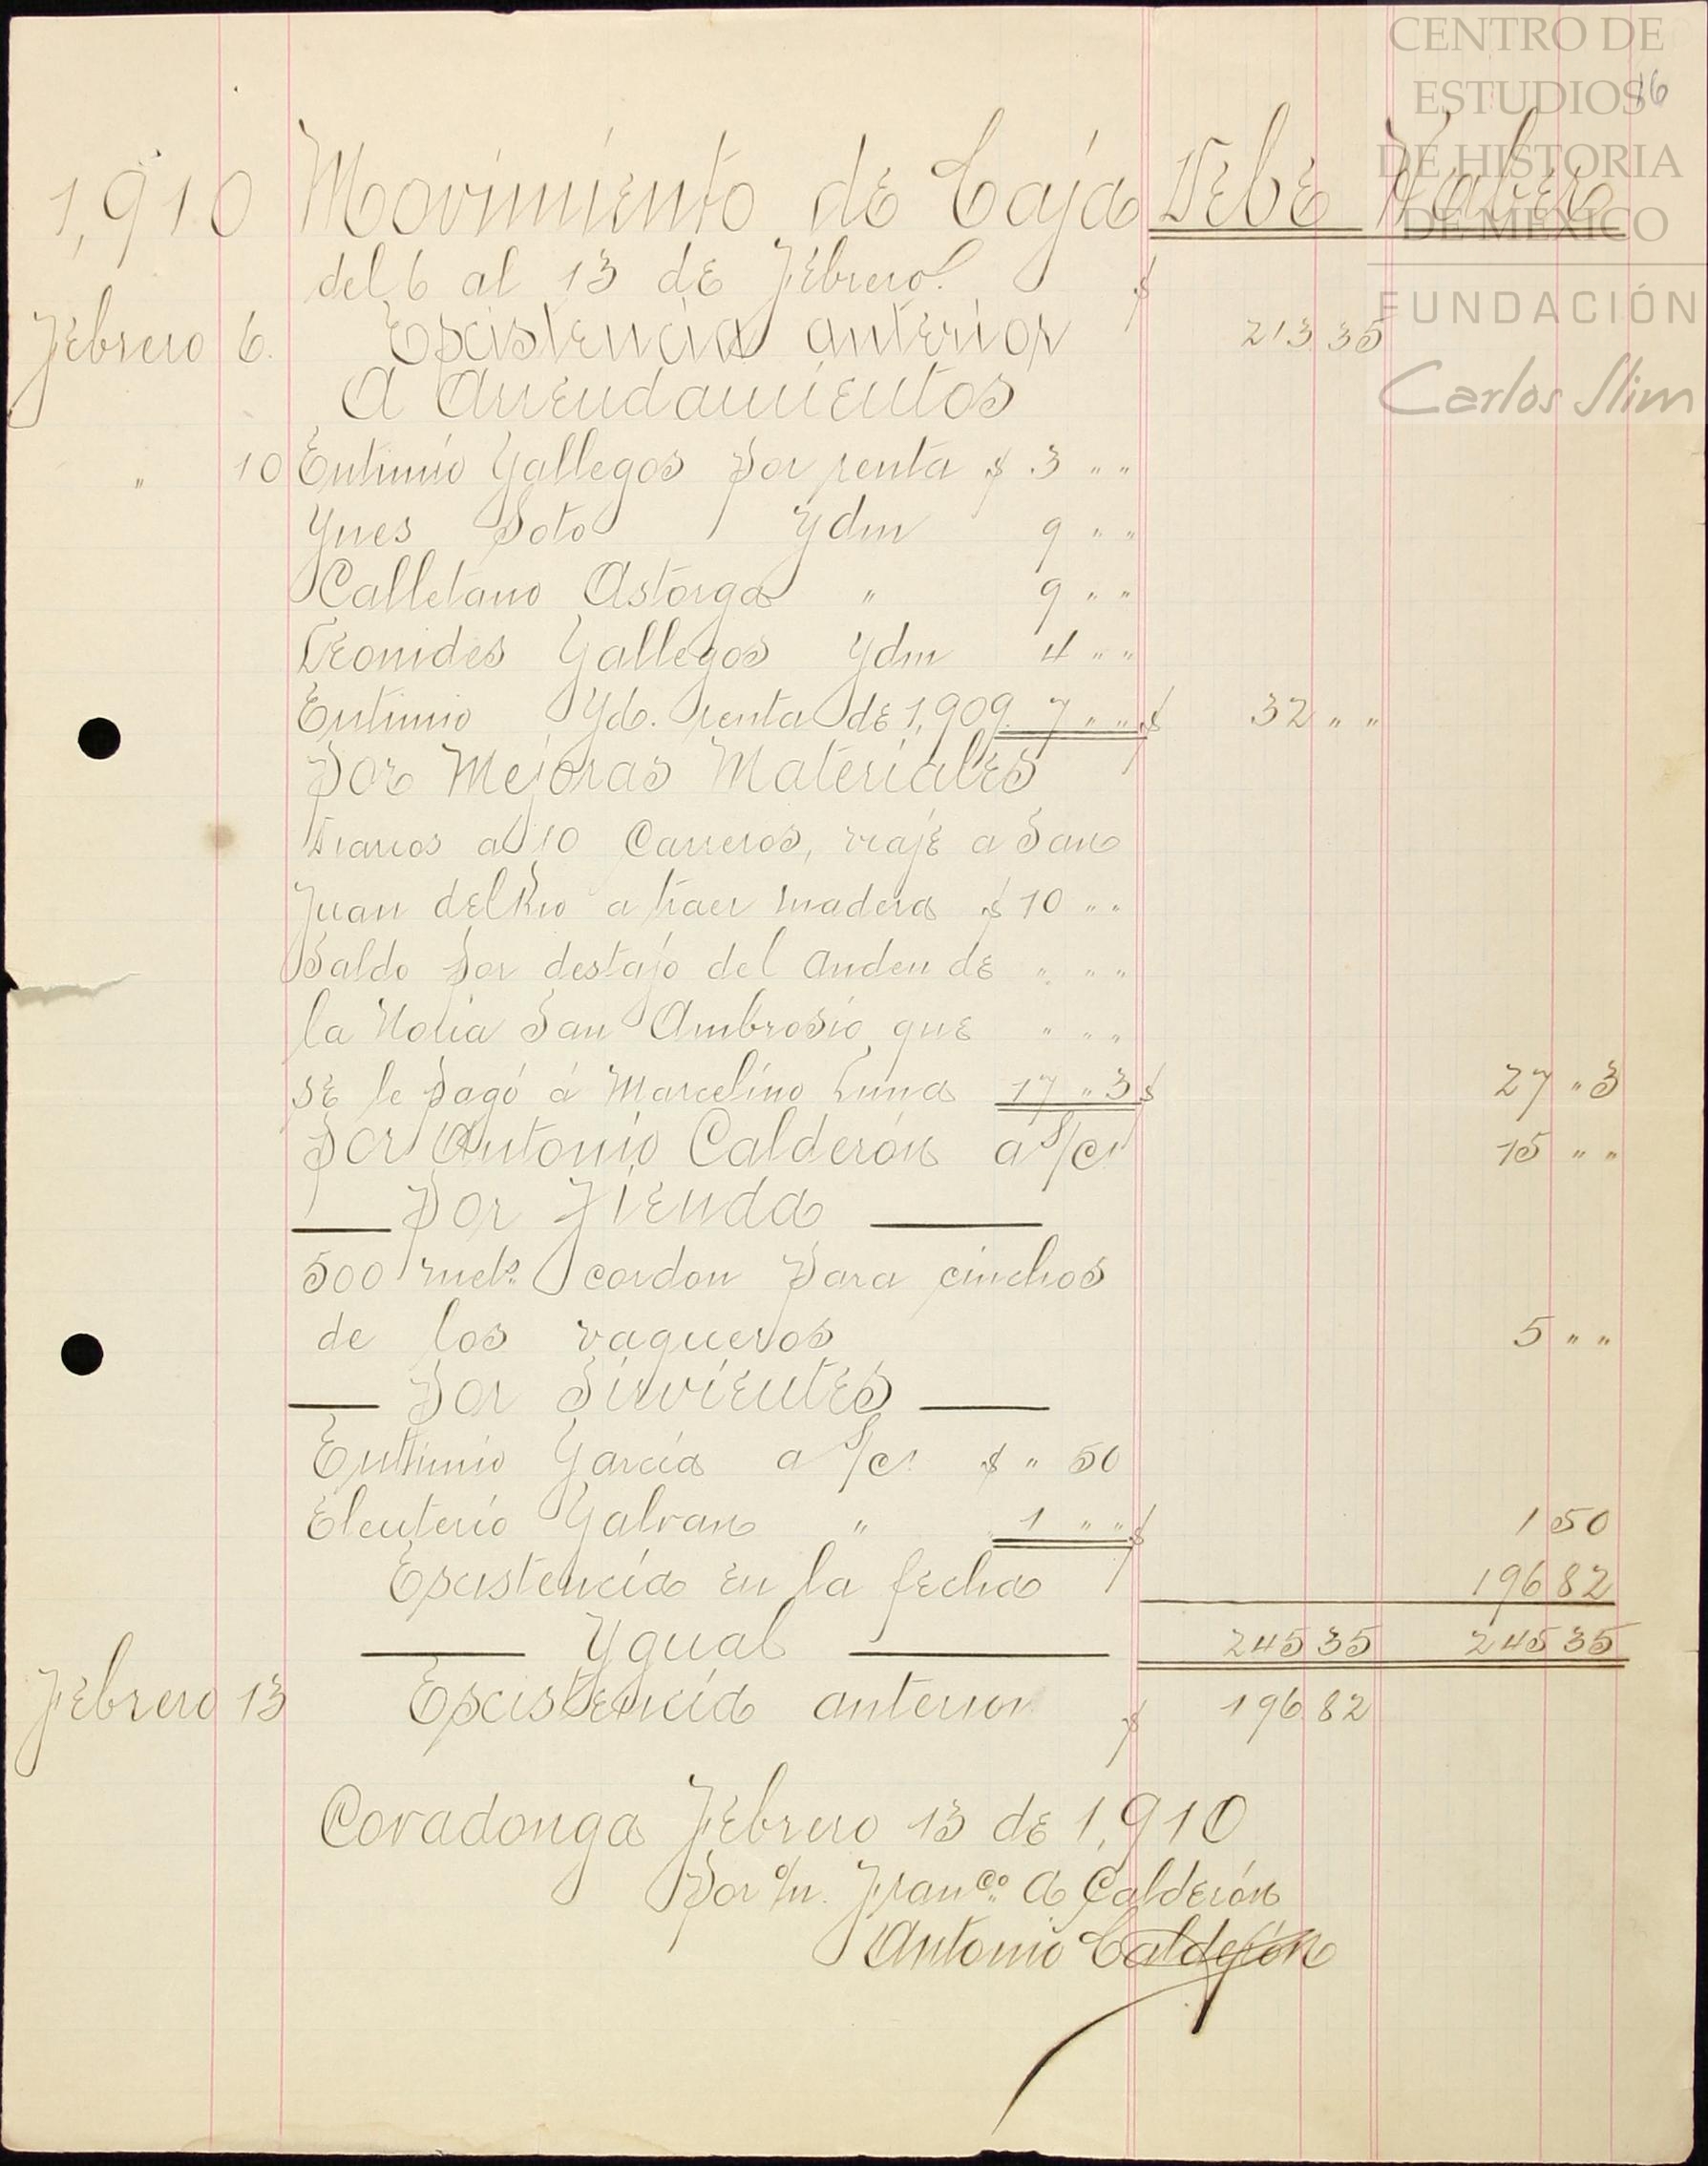 CENTRO DE
ESTUDIOS
16
DE HISTORIA
DE MEXICO
FUNDACIÓN
Carlos Slim
1,910 Movimiento de Caja Debe Haber
del 6 al 13 de Febrero. $
Febrero 6. Existencia anterior 213 35
A Arrendamientos
" 10 Eutimio Gallegos por renta $ 3 " "
Ynes Soto Ydm 9 " "
Calletano Astorga " 9 " "
Leonides Gallegos Ydm 4 " "
Eutimio Yd. renta de 1,909. 7 " " $ 32 " "
Por Mejoras Materiales
Diarios a 10 Carreros, viaje a San
Juan del Rio a traer madera $ 10 " "
Saldo por destajo del anden de " " "
la Noria San Ambrosio que " " "
se le pagó á Marcelino Luna 17 " 3 $ 27 " 3
Por Antonio Calderón a s/c 15 " "
Por Tienda
500 mets. cordon para cinchos
de los vaqueros 5 " "
Por Sirvientes
Eutimio García a s/c. $ " 50
Eleuterio Galvan " 1 " " $ 1 50
Existencia en la fecha 196 82
Ygual 245 35 245 35
Febrero 13 Existencia anterior $ 196 82
Covadonga Febrero 13 de 1,910
Por o/n. Franco. A Calderón
Antonio Calderón